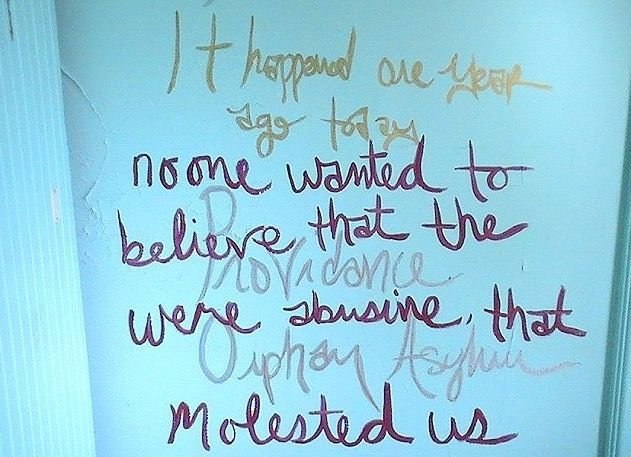 It happened one year
ago today
no one wanted to
believe that the
Providance
were abusine, that
Orphan Asylum
Molested us